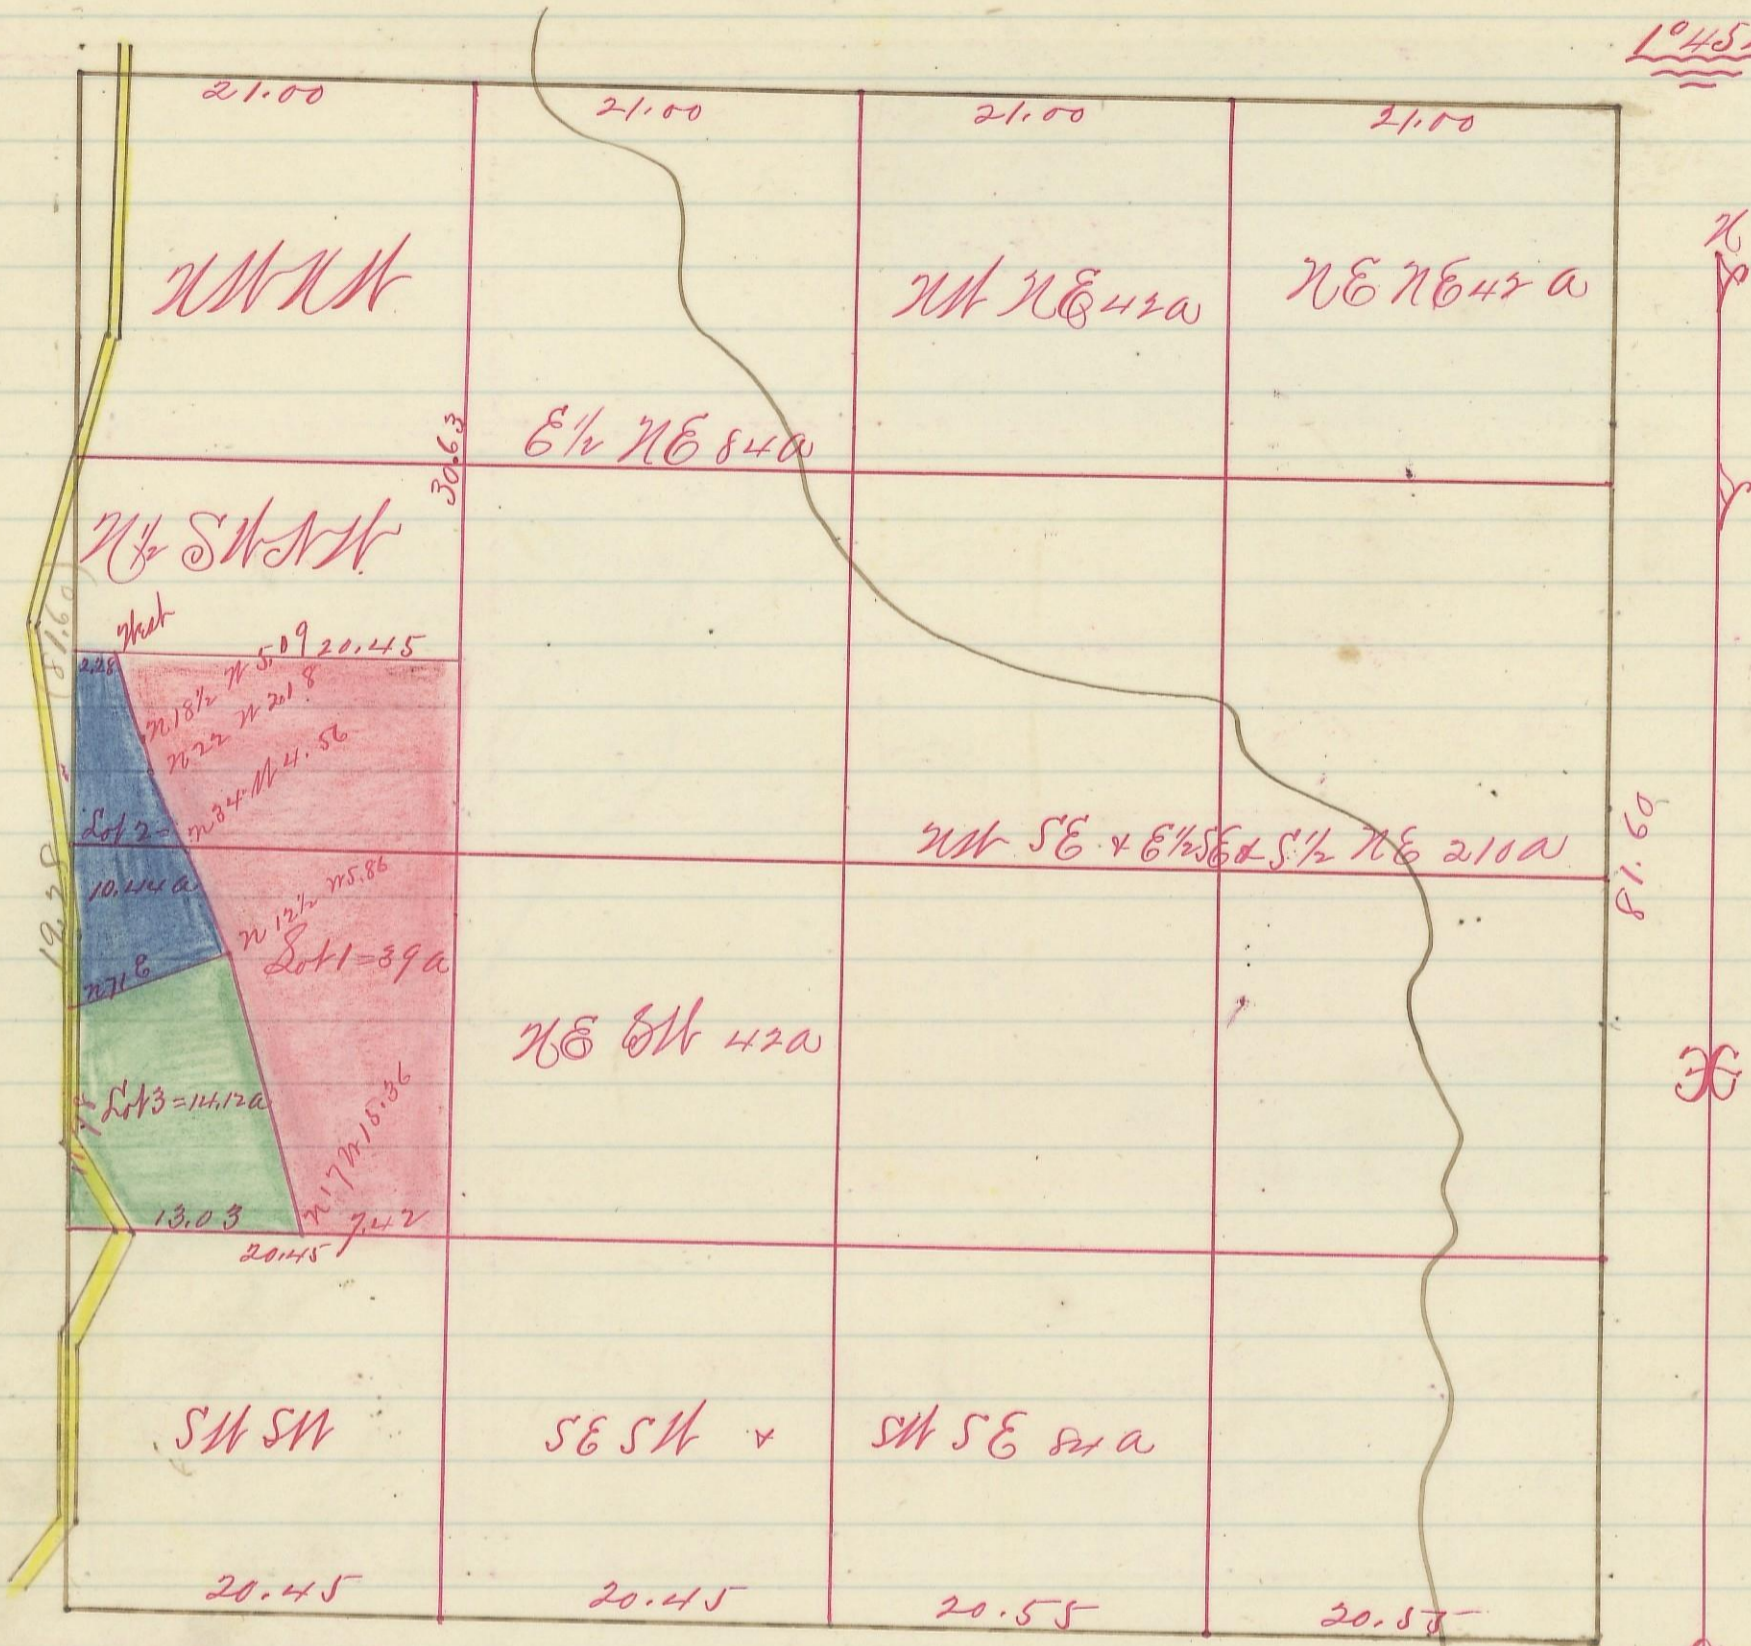 1°45
21.00
21.00
21.00
21.00
N
NW NW
NW NE 42a
NE NE 42 a
30.63
E½ NE 84a
N½ SW NW
(81.60)
West
2.28
20.45
N 18½ W 5.09
N 22 W 2.18
N 34 W 4.56
Lot 2 =
10.44a
19.28
N 12½ W 5.86
Lot 1 = 39 a
N 71 E
NW SE & E½ SE & S½ NE 210a
81.60
NE SW 42a
Lot 3 = 14.12a
N 17 W 15.36
13.03
7.42
20.45
SW SW
SE SW &
SW SE 84 a
20.45
20.45
20.55
20.55